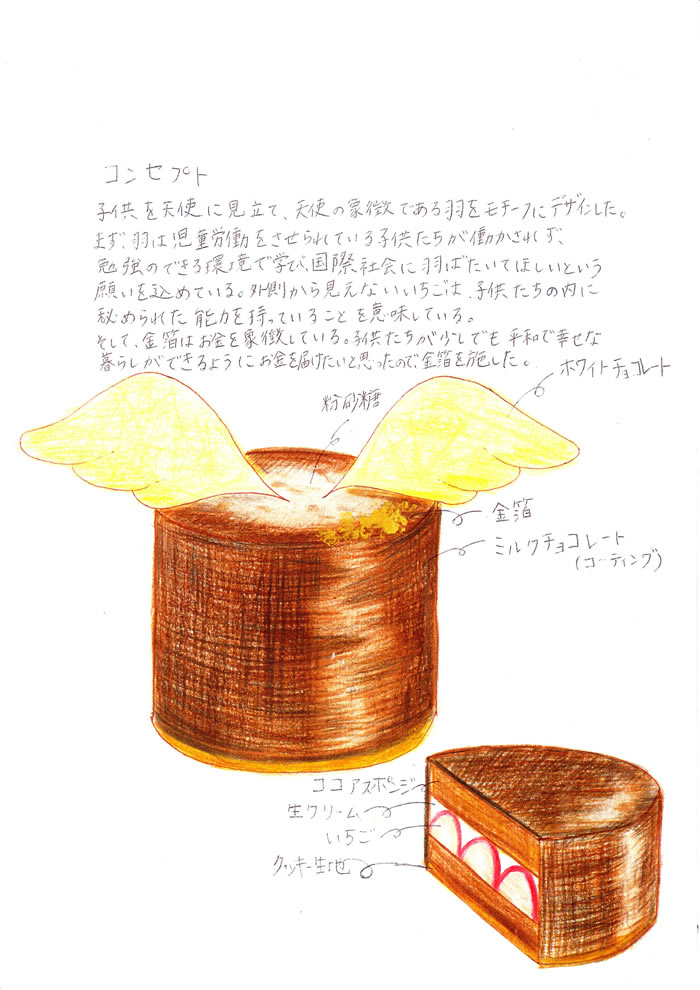 コンセプト
子供を天使に見立て、天使の象徴である羽をモチーフにデザインした。
まず、羽は児童労働をさせられている子供たちが働かされず、
勉強のできる環境で学び、国際社会に羽ばたいてほしいという
願いを込めている。外側から見えないいちごは、子供たちの内に
秘められた能力を持っていることを意味している。
そして、金箔はお金を象徴している。子供たちが少しでも平和で幸せな
暮らしができるようにお金を届けたいと思ったので、金箔を施した。
ホワイトチョコレート
粉砂糖
金箔
ミルクチョコレート
(コーティング)
ココアスポンジ
生クリーム
いちご
クッキー生地